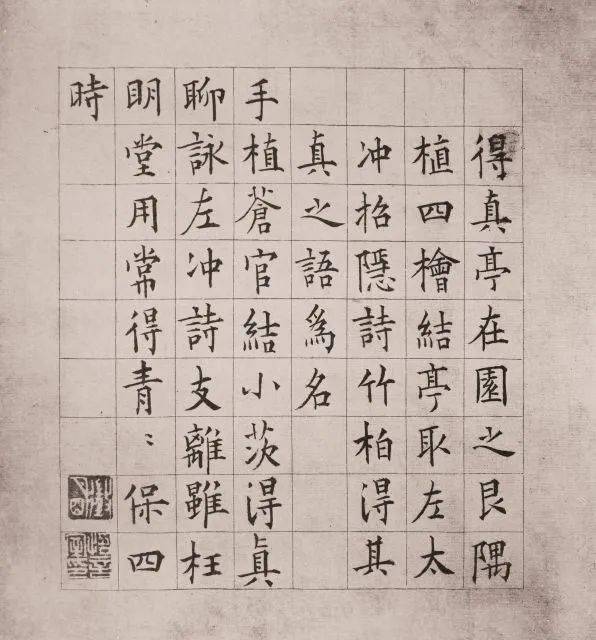 得真亭在園之艮隅
植四檜結亭取左太
冲招隱詩竹柏得其
真之語爲名
手植蒼官結小茨得真
聊詠左冲詩支離雖枉
明堂用常得青〻保四
時